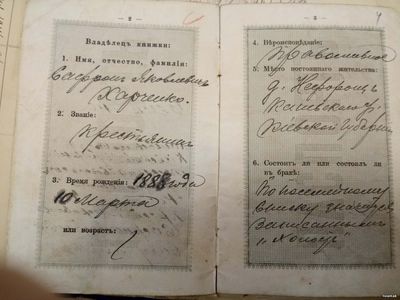 — 2 —
Владѣлецъ книжки:
1. Имя, отчество, фамилія:
Яковлевичъ
Харченко.
2. Званіе:
Крестьянинъ
3. Время рожденія: 1888 года
10 Марта
или возрастъ:
— 3 —
4. Вѣроисповѣданіе:
Православное
5. Мѣсто постояннаго жительства:
д.
Кіевской Губерніи
6. Состоитъ ли или состоялъ ли
въ бракѣ:
По посемейному
списку значится
записаннымъ